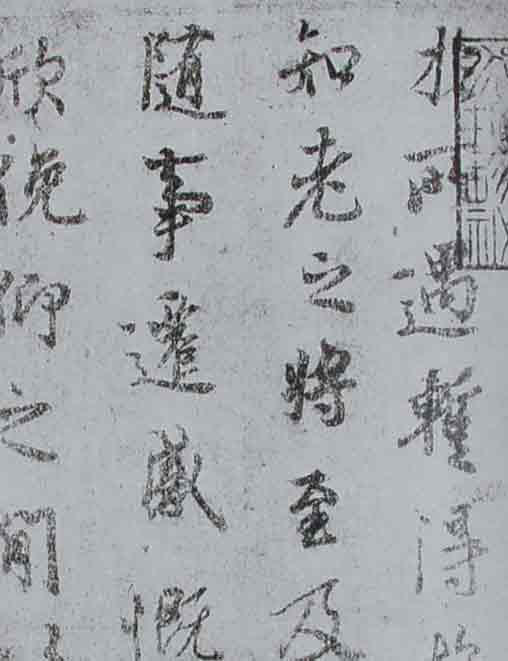 扵所遇蹔得
知老之將至及
隨事遷感慨
欣俛仰之間